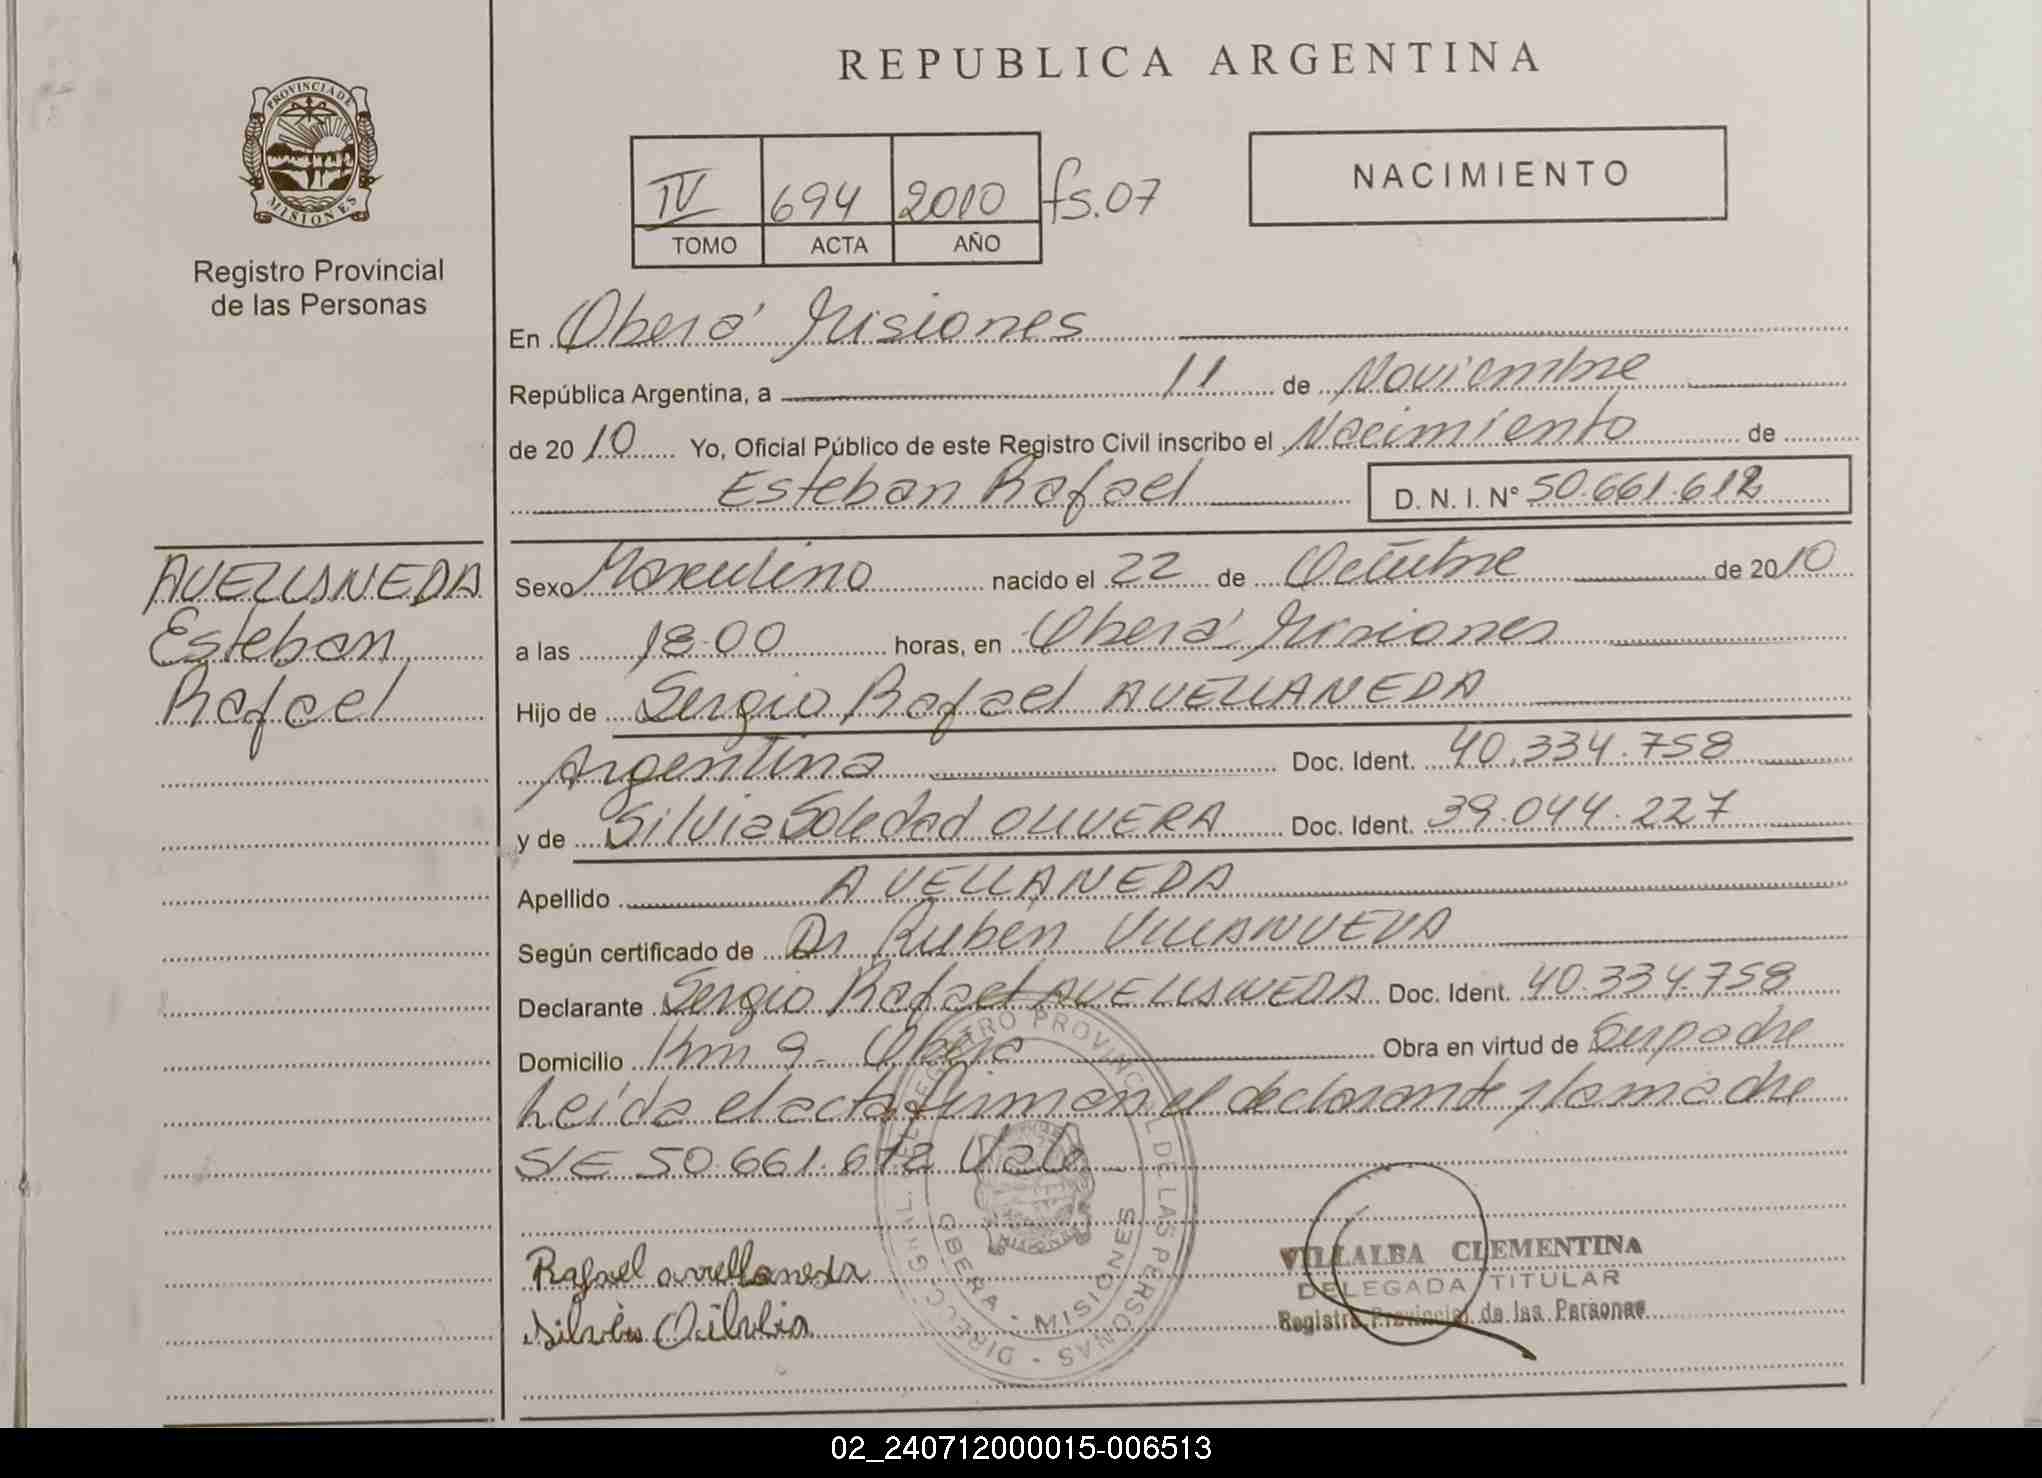 REPUBLICA ARGENTINA
PROVINCIA DE
MISIONES
Registro Provincial
de las Personas
IV 694 2010 fs.07
TOMO ACTA AÑO
NACIMIENTO
En Oberá Misiones
República Argentina, a 11 de Noviembre
de 2010 Yo, Oficial Público de este Registro Civil inscribo el Nacimiento de
Esteban Rafael D. N. I. Nº 50.661.612
AVELLANEDA
Esteban
Rafael
Sexo Masculino nacido el 22 de Octubre de 2010
a las 18.00 horas, en Oberá Misiones
Hijo de Sergio Rafael AVELLANEDA
Argentina Doc. Ident. 40.334.758
y de Silvia Soledad OLIVERA Doc. Ident. 39.044.227
Apellido AVELLANEDA
Según certificado de Dr Rubén VILLANUEVA
Declarante Sergio Rafael AVELLANEDA Doc. Ident. 40.334.758
Domicilio Km 9 - Oberá Obra en virtud de Ser padre
Leída el acta firman el declarante y la madre
S/E 50.661.612 Vale
Rafael avellaneda
VILLALBA CLEMENTINA
DELEGADA TITULAR
Registro Provincial de las Personas
Silvia
REGISTRO PROVINCIAL DE LAS PERSONAS
OBERA - MISIONES
02_240712000015-006513